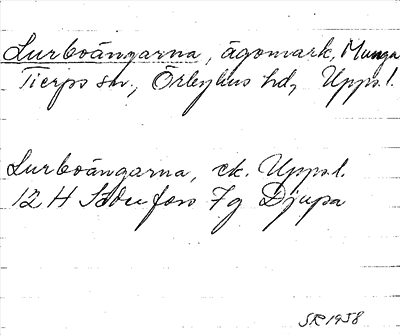 Lurboängarna, ägomark, Munga
Tierps sn, Örbyhus hd, Upps.l.
Lurboängarna, ek. Upps.l.
12 H Söderfors 7g Djupa
SR 1958